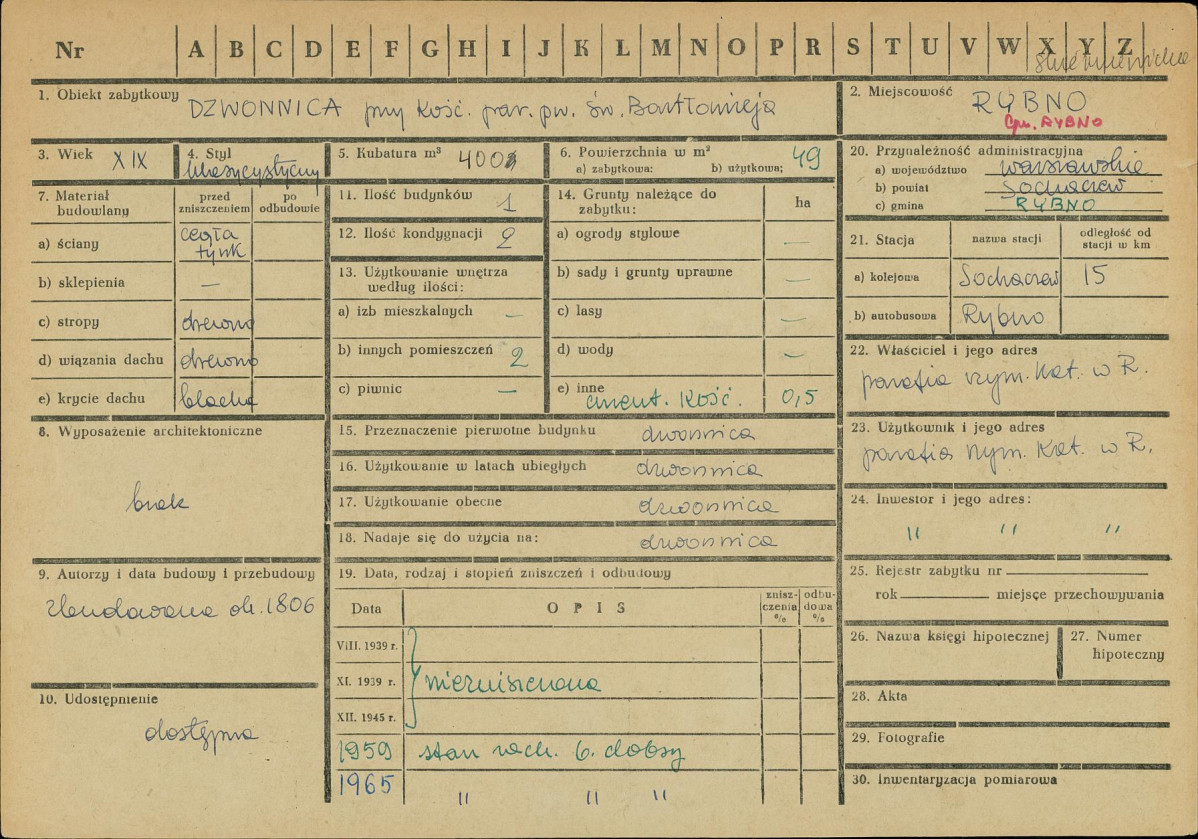 Nr A B C D E F G H I J K L M N O P R S T U V W X Y Z
1. Obiekt zabytkowy DZWONNICA przy Kość. par. pw. Św. Bartłomieja
2. Miejscowość RYBNO
Gm. RYBNO
3. Wiek XIX
4. Styl klasycystyczny
5. Kubatura m³ 400
6. Powierzchnia w m²
a) zabytkowa: b) użytkowa; 49
7. Materiał budowlany
przed zniszczeniem
po odbudowie
a) ściany cegła tynk
b) sklepienia —
c) stropy drewno
d) wiązania dachu drewno
e) krycie dachu blacha
8. Wyposażenie architektoniczne
brak
9. Autorzy i data budowy i przebudowy
Zbudowana ok. 1806
10. Udostępnienie
dostępna
11. Ilość budynków 1
12. Ilość kondygnacji 2
13. Użytkowanie wnętrza
według ilości:
a) izb mieszkalnych —
b) innych pomieszczeń 2
c) piwnic —
14. Grunty należące do
zabytku: ha
a) ogrody stylowe —
b) sady i grunty uprawne —
c) lasy —
d) wody —
e) inne cment. Kość. 0,5
15. Przeznaczenie pierwotne budynku dzwonnica
16. Użytkowanie w latach ubiegłych dzwonnica
17. Użytkowanie obecne dzwonnica
18. Nadaje się do użycia na: dzwonnica
19. Data, rodzaj i stopień zniszczeń i odbudowy
Data OPIS znisz-czenia % odbu-dowa %
VIII. 1939 r.
XI. 1939 r. niezniszczona
XII. 1945 r.
1959 stan zach. b. dobry
1965 " " "
20. Przynależność administracyjna
a) województwo warszawskie
b) powiat Sochaczew
c) gmina RYBNO
21. Stacja nazwa stacji odległość od stacji w km
a) kolejowa Sochaczew 15
b) autobusowa Rybno
22. Właściciel i jego adres
parafia rzym. Kat. w R.
23. Użytkownik i jego adres
parafia rzym. Kat. w R.
24. Inwestor i jego adres:
" " "
25. Rejestr zabytku nr
rok miejsce przechowywania
26. Nazwa księgi hipotecznej
27. Numer
hipoteczny
28. Akta
29. Fotografie
30. Inwentaryzacja pomiarowa